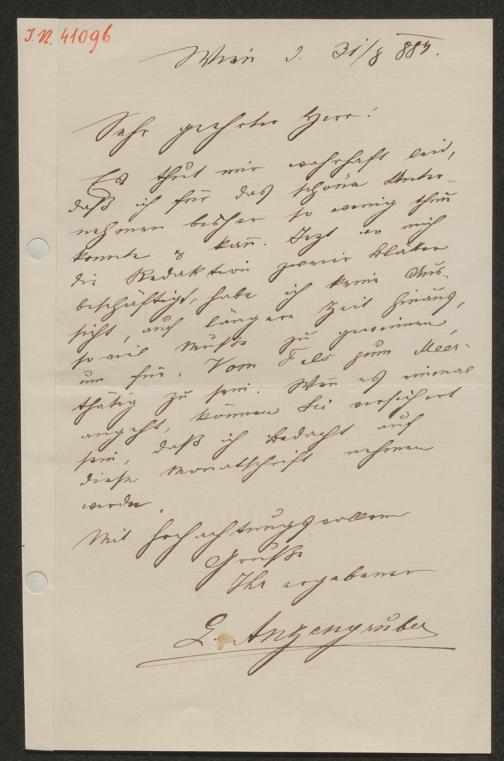 J.N. 41096
Wien d. 31/8 884.
Sehr geehrter Herr!
Es thut mir wahrhaft leid,
daß ich für das schöne Unter-
nehmen bisher so wenig thun
konnte & kann. Jetzt wo mich
die Redaktion zweier Blätter
beschäftigt, habe ich keine Aus-
sicht, auf längere Zeit hinaus,
so viel Muße zu gewinnen,
um für „Vom Fels zum Meer"
thätig zu sein. Wenn es einmal
angeht, können Sie versichert
sein, daß ich Bedacht auf
diese Monatschrift nehmen
werde.
Mit hochachtungsvollem
Gruße
Ihr ergebener
L. Anzengruber